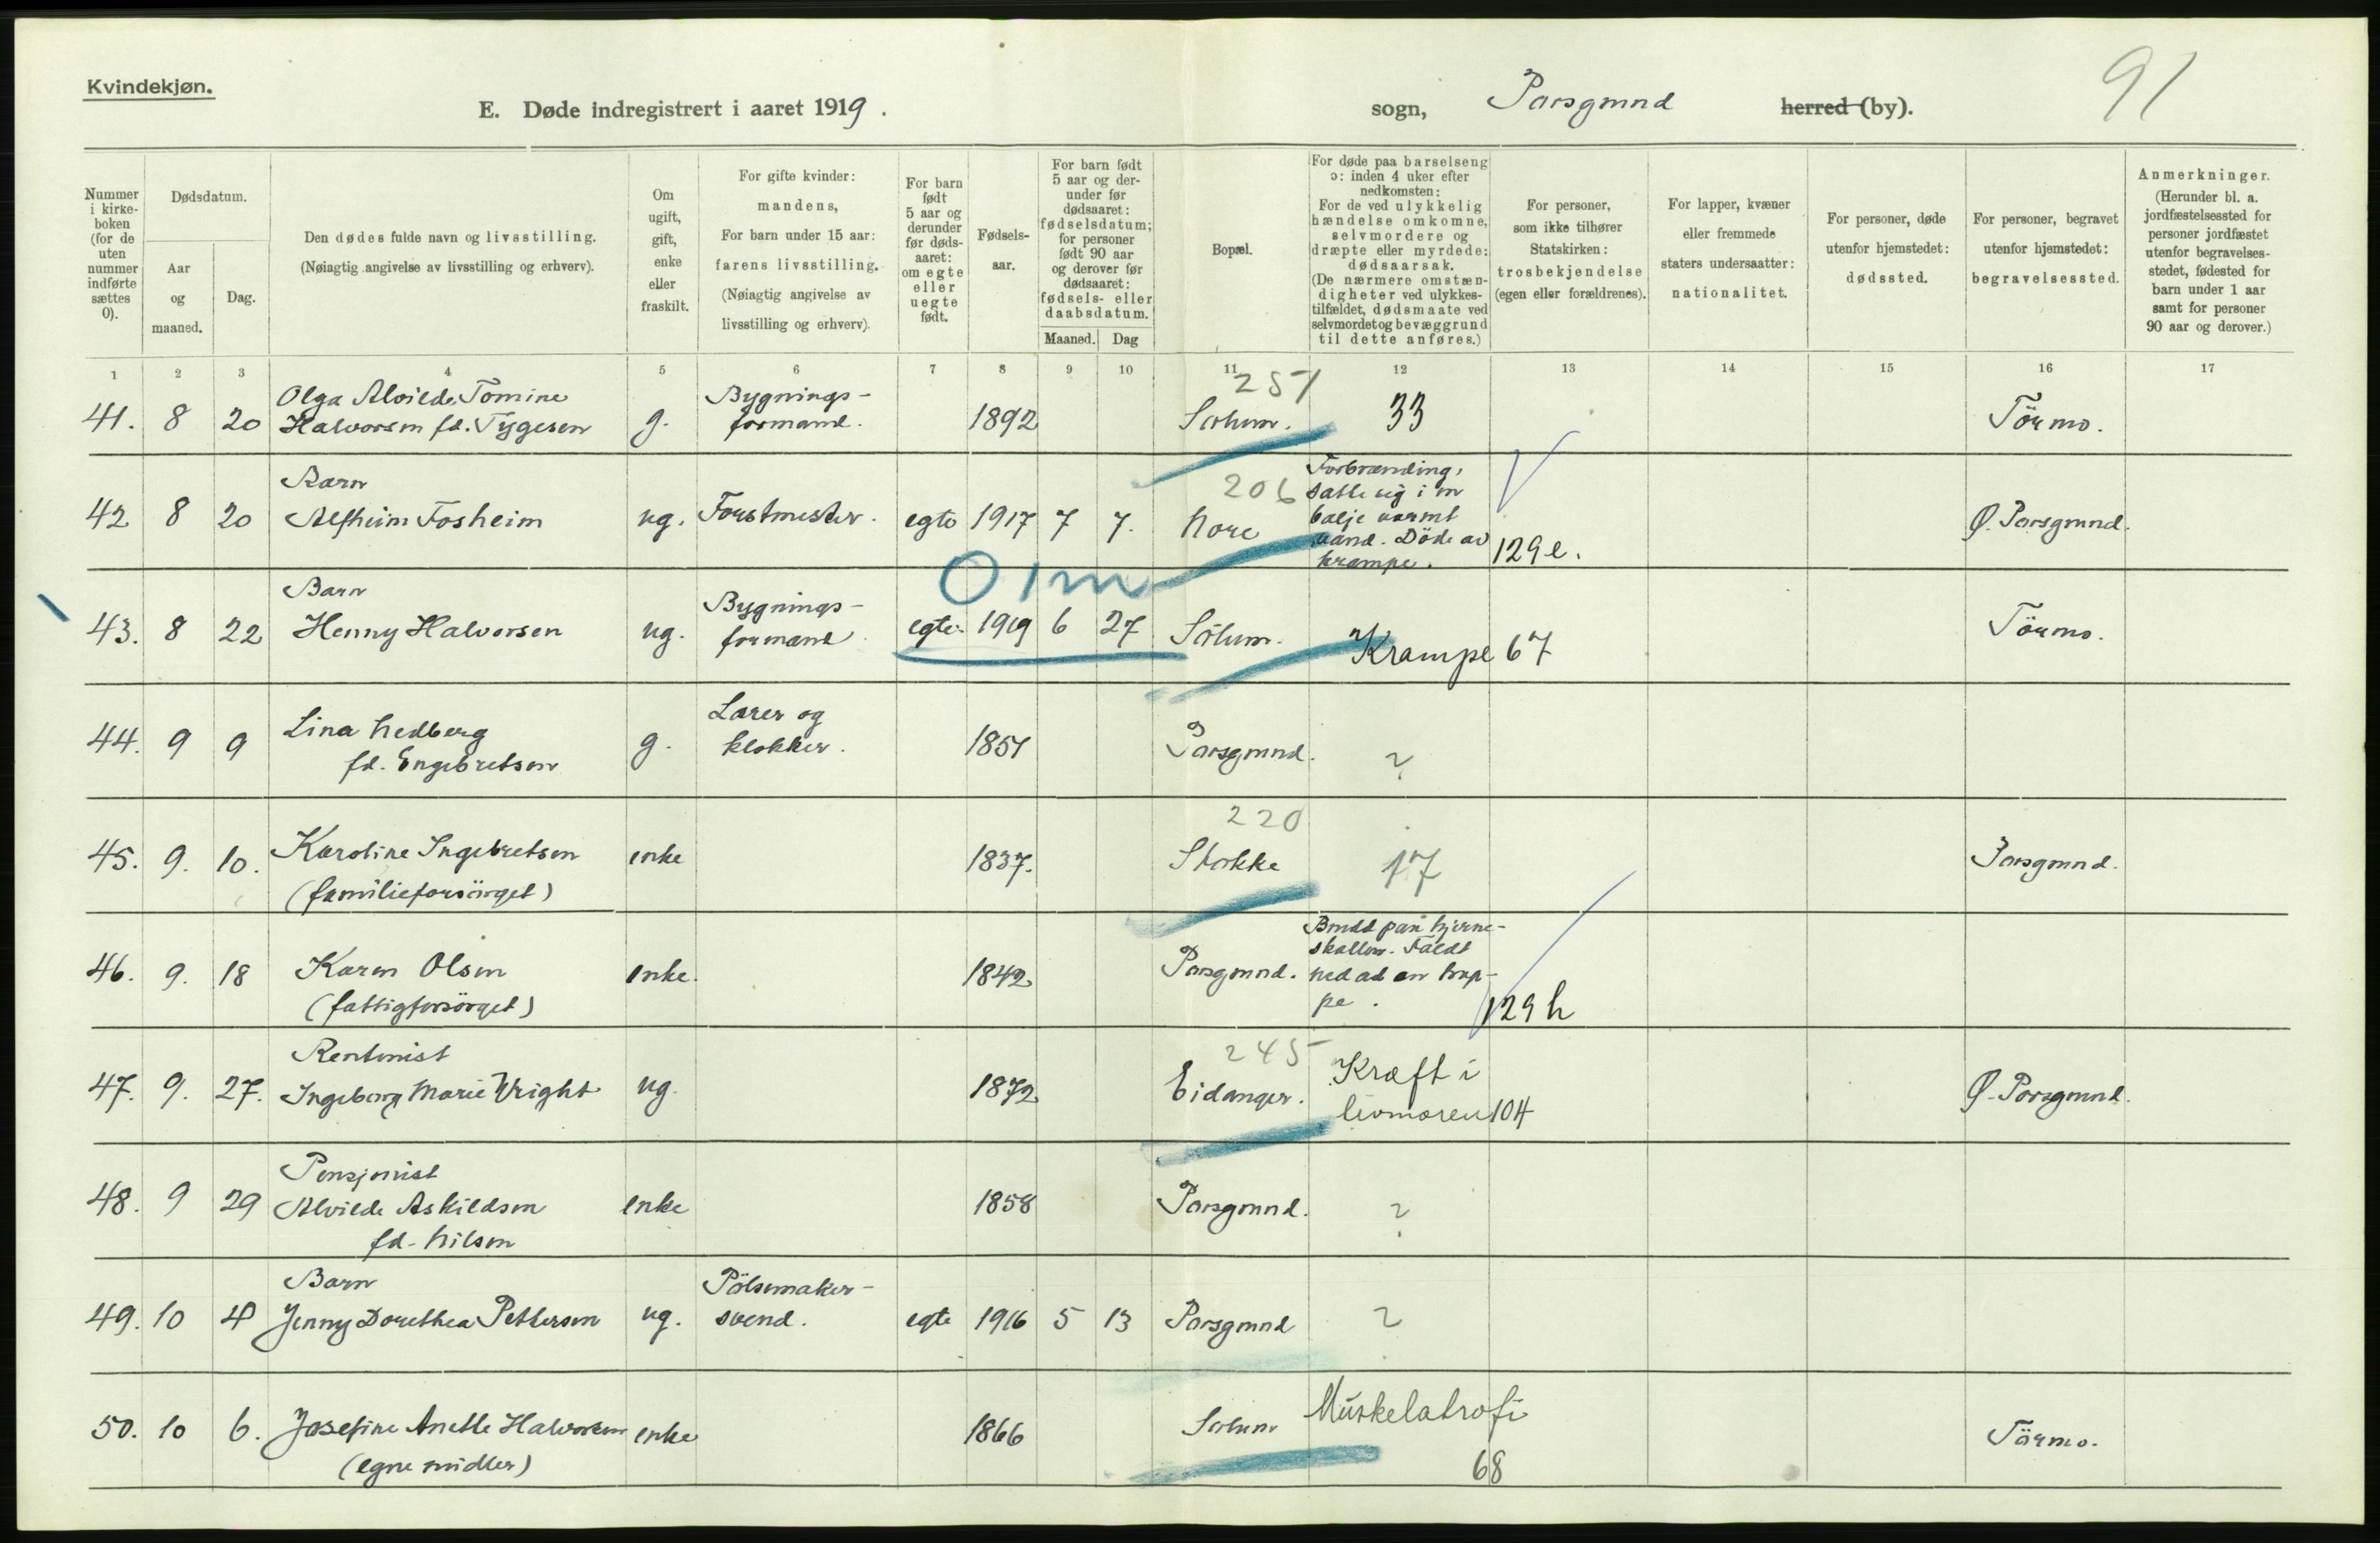 Kvindekjøn.
E. Døde indregistrert i aaret 1919.
sogn, Porsgrund herred (by).
91
Nummer i kirkeboken (for de uten nummer indførte sættes 0).
Dødsdatum.
Aar og maaned.
Dag.
Den dødes fulde navn og livsstilling.
(Nøiagtig angivelse av livsstilling og erhverv).
Om ugift, gift, enke eller fraskilt.
For gifte kvinder: mandens,
For barn under 15 aar: farens livsstilling.
(Nøiagtig angivelse av livsstilling og erhverv).
For barn født 5 aar og derunder før dødsaaret: om egte eller uegte født.
Fødselsaar.
For barn født 5 aar og derunder før dødsaaret: fødselsdatum; for personer født 90 aar og derover før dødsaaret: fødsels- eller daabsdatum.
Maaned. Dag
Bopæl.
For døde paa barselseng ɔ: inden 4 uker efter nedkomsten:
For de ved ulykkelig hændelse omkomne, selvmordere og dræpte eller myrdede: dødsaarsak.
(De nærmere omstændigheter ved ulykkestilfældet, dødsmaate ved selvmordet og bevæggrund til dette anføres.)
For personer, som ikke tilhører Statskirken: trosbekjendelse (egen eller forældrenes).
For lapper, kvæner eller fremmede staters undersaatter: nationalitet.
For personer, døde utenfor hjemstedet: dødssted.
For personer, begravet utenfor hjemstedet: begravelsessted.
Anmerkninger.
(Herunder bl. a. jordfæstelsessted for personer jordfæstet utenfor begravelsesstedet, fødested for barn under 1 aar samt for personer 90 aar og derover.)
1 2 3 4 5 6 7 8 9 10 11 12 13 14 15 16 17
Olga Alvilde Tomine Bygnings- 257
41. 8 20 Halvorsen fd. Tygesen g. formand. 1892 Solum. 33 Törmo.
Barn 206 Forbrænding,
42 8 20 Alfheim Fosheim ug. Forstmester. egte 1917 7 7. Nore satte sig i en balje varmt vand. Döde av krampe. 129 e. Ø. Porsgrund.
0 1 m
Barn Bygnings-
43. 8 22 Henny Halvorsen ug. formand egte. 1919 6 27 Solum. Krampe 67 Törmo.
Lina Hedberg Lærer og
44. 9 9 fd. Engebretsen g. klokker. 1851 Porsgrund. ?
220
45. 9. 10. Karoline Ingebretsen enke 1837. Stokke 17 Porsgrund.
(familieforsörget)
46. 9. 18 Karen Olsen enke. 1842 Porsgrund. Brudd paa hjerneskallen. Faldt ned ad en trappe. 129 h
(fattigforsörget)
Rentenist 245
47. 9. 27. Ingeborg Marie Wright ug. 1872 Eidanger. Kræft i livmoren 104 Ø. Porsgrund.
Pensjonist
48. 9 29 Alvilde Askildsen enke 1858 Porsgrund. ?
fd. Nilsen
Barn Pölsemaker-
49. 10 4 Jenny Dorethea Pettersen ug. svend. egte 1916 5 13 Porsgrund ?
50. 10 6. Josefine Anette Halvorsen enke 1866 Solum Muskelatrofi 68 Törmo.
(egne midler)